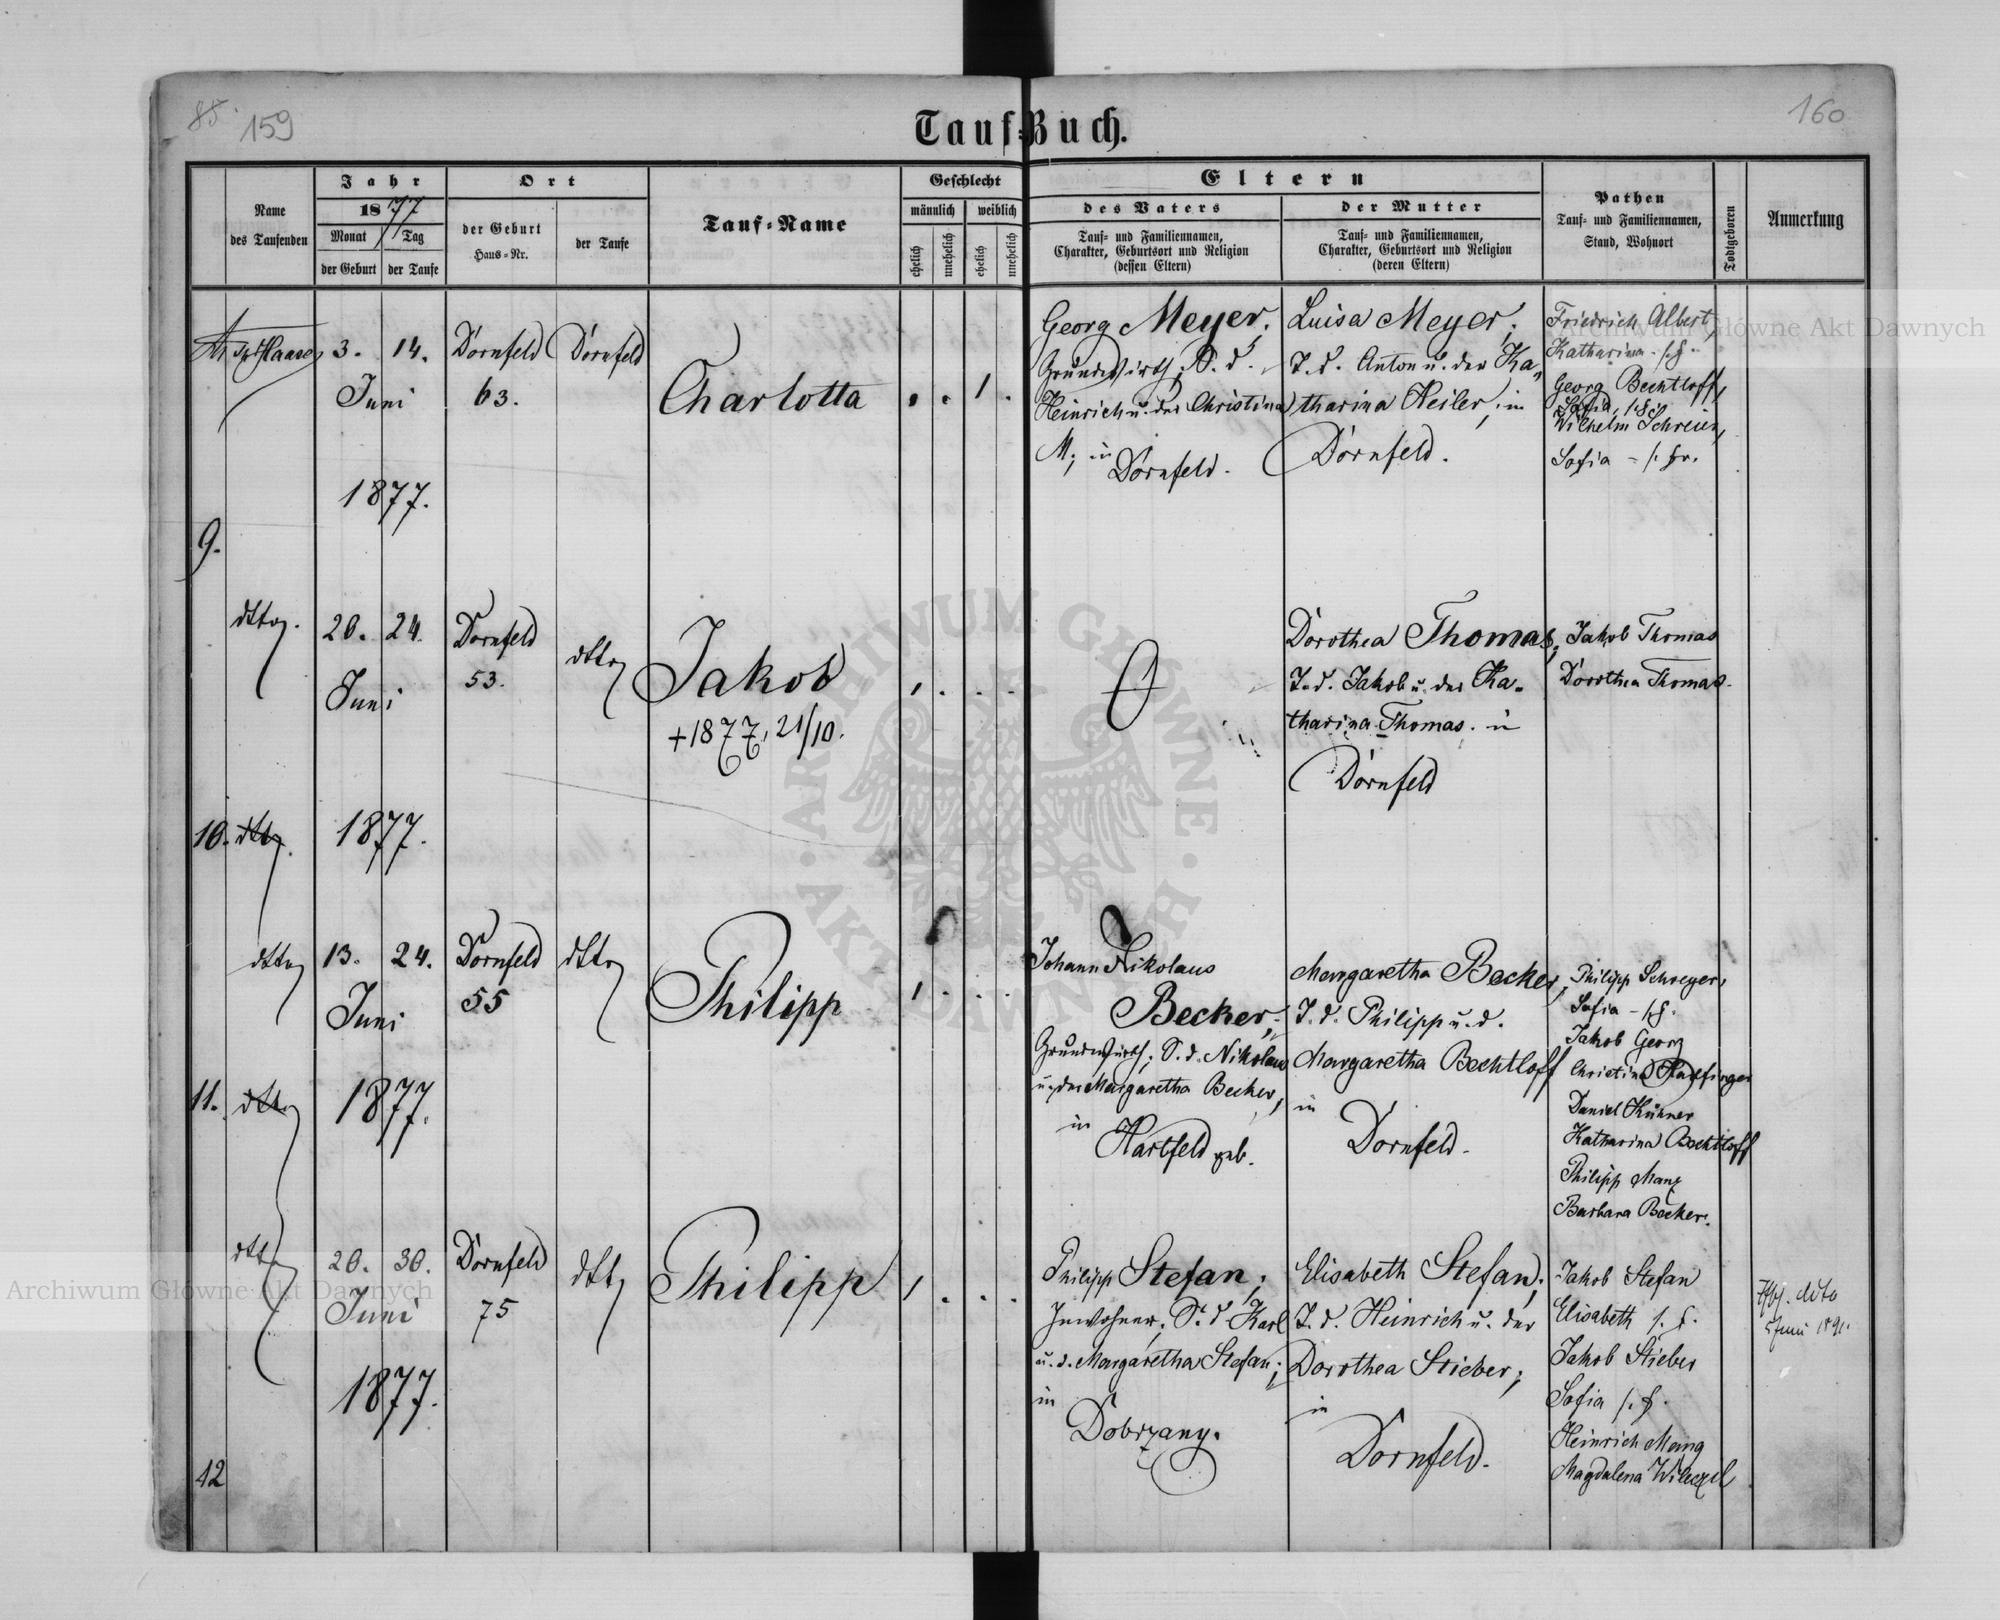 85. 159
160
Tauf-Buch.
Name
des Taufenden
Jahr
1877
Monat Tag
der Geburt der Taufe
Ort
der Geburt
Haus-Nr.
der Taufe
Tauf-Name
Geschlecht
männlich weiblich
ehelich unehelich ehelich unehelich
Eltern
des Vaters
Tauf- und Familiennamen,
Charakter, Geburtsort und Religion
(dessen Eltern)
der Mutter
Tauf- und Familiennamen,
Charakter, Geburtsort und Religion
(deren Eltern)
Pathen
Tauf- und Familiennamen,
Stand, Wohnort
Todtgeboren
Anmerkung
9.
Haase
3. 14.
Juni
1877.
Dornfeld
63.
Dornfeld
Charlotta
1
Georg Meyer,
Grundwirth, S. d.
Heinrich u. der Christina
M, in
Dornfeld.
Luisa Meyer,
T. d. Anton u. der Ka-
tharina Heiler, in
Dornfeld.
Friedrich Albert,
Katharina
Georg Bechtloff,
Sofia
Wilhelm Schreier,
Sofia
10.
dtto.
20. 24.
Juni
1877.
Dornfeld
53.
dtto
Jakob
+1877, 21/10.
1
Dorothea Thomas,
T. d. Jakob u. der Ka-
tharina Thomas. in
Dornfeld
Jakob Thomas
Dorothea Thomas.
11.
dtto
13. 24.
Juni
1877.
Dornfeld
55
dtto
Philipp
1
Johann Nikolaus
Becker,
Grundwirth, S. d. Nikolaus
u. der Margaretha Becker,
in
Hartfeld geb.
Margaretha Becker,
T. d. Philipp u. d.
Margaretha Bechtloff
in
Dornfeld.
Philipp Schreyer,
Sofia
Jakob Georg
Christina
Daniel Kühner
Katharina Bechtloff
Philipp Manz
Barbara Becker.
12
dtto
20. 30.
Juni
1877.
Dornfeld
75
dtto
Philipp
1
Philipp Stefan,
Inwohner, S. d. Karl
u. d. Margaretha Stefan,
in
Dobrzany.
Elisabeth Stefan,
T. d. Heinrich u. der
Dorothea Stieber,
in
Dornfeld.
Jakob Stefan
Elisabeth
Jakob Stieber
Sofia
Heinrich Mang
Magdalena
Juni 1891.
Archiwum Główne Akt Dawnych
ARCHIWUM GŁÓWNE AKT DAWNYCH
Archiwum Główne Akt Dawnych